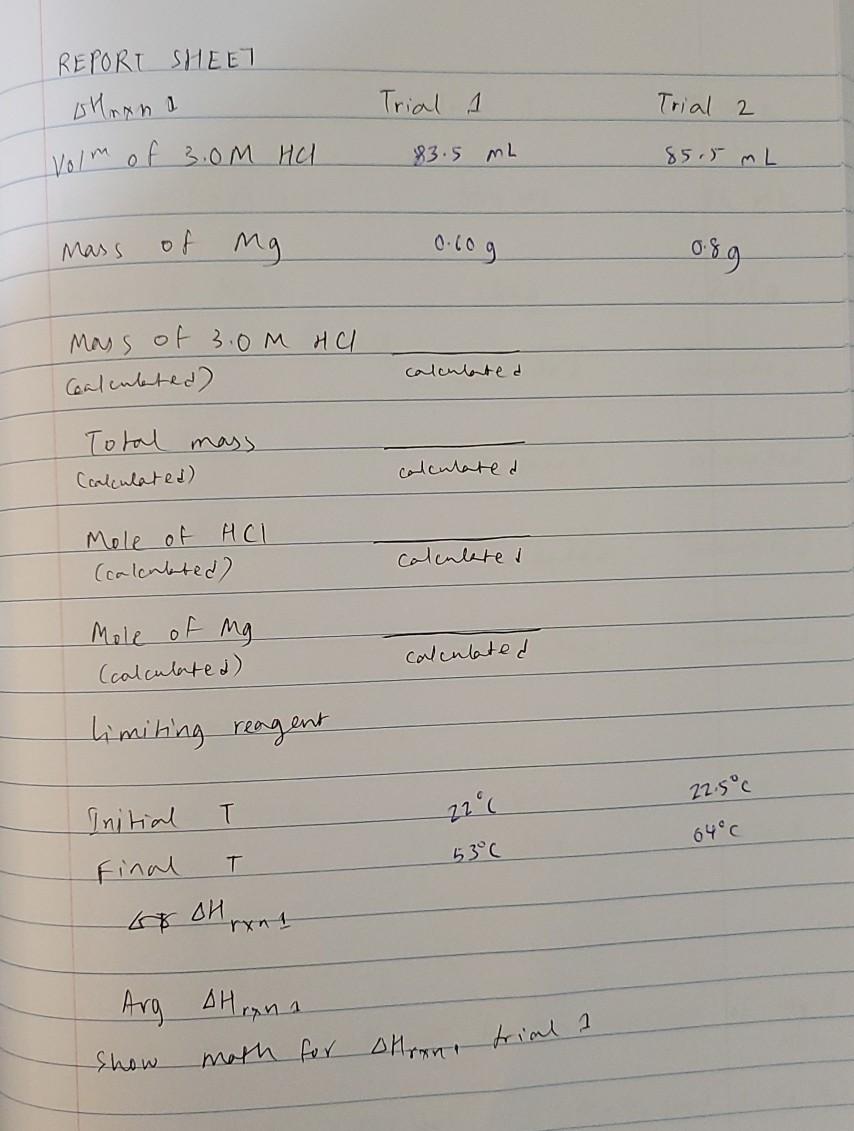 REPORT SHEET
ΔHrxn 1 Trial 1 Trial 2
Volm of 3.0M HCl 83.5 mL 85.5 mL
Mass of Mg 0.60 g 0.8g
Mass of 3.0 M HCl
(calculated) calculated
Total mass
(calculated) calculated
Mole of HCl
(calculated) calculated
Mole of Mg
(calculated) calculated
limiting reagent
Initial T 22°C 22.5°C
Final T 53°C 64°C
ΔHrxn1
Avg ΔHrxn1
Show math for ΔHrxn1 trial 1